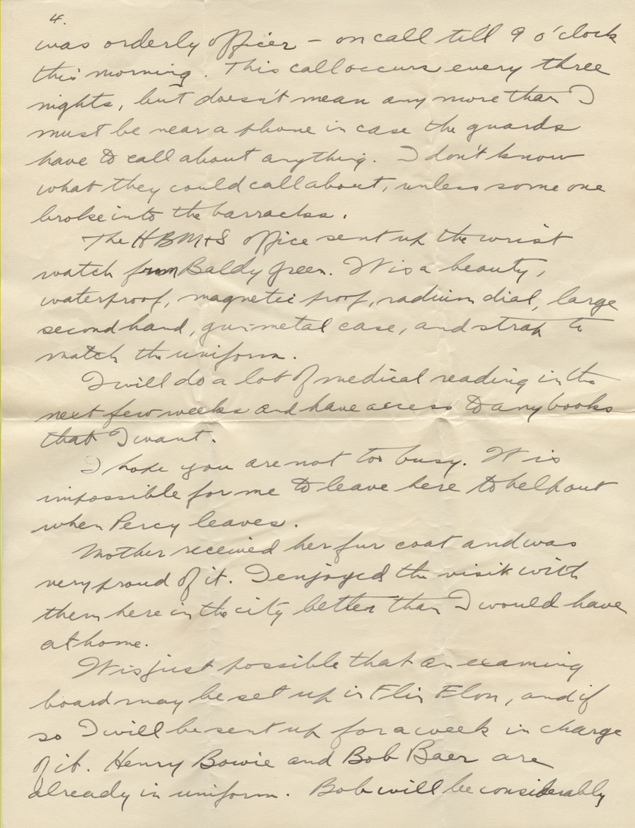 4.
was orderly officer - on call till 9 o'clock
this morning. This call occurs every three
nights, but doesn't mean any more than I
must be near a phone in case the guards
have to call about anything. I don't know
what they could call about, unless some one
broke into the barracks.
The HBM+S office sent up the wrist
watch from Baldy Green. It is a beauty,
waterproof, magnetic proof, radium dial, large
second hand, gunmetal case, and strap to
match the uniform.
I will do a lot of medical reading in the
next few weeks and have access to any books
that I want.
I hope you are not too busy. It is
impossible for me to leave here to help out
when Percy leaves.
Mother received her fur coat and was
very proud of it. I enjoyed the visit with
them here in the city better than I would have
at home.
It is just possible that an examing
board may be set up in Flin Flon, and if
so I will be sent up for a week in charge
of it. Henry Bowie and Bob Baer are
already in uniform. Bob will be considerably